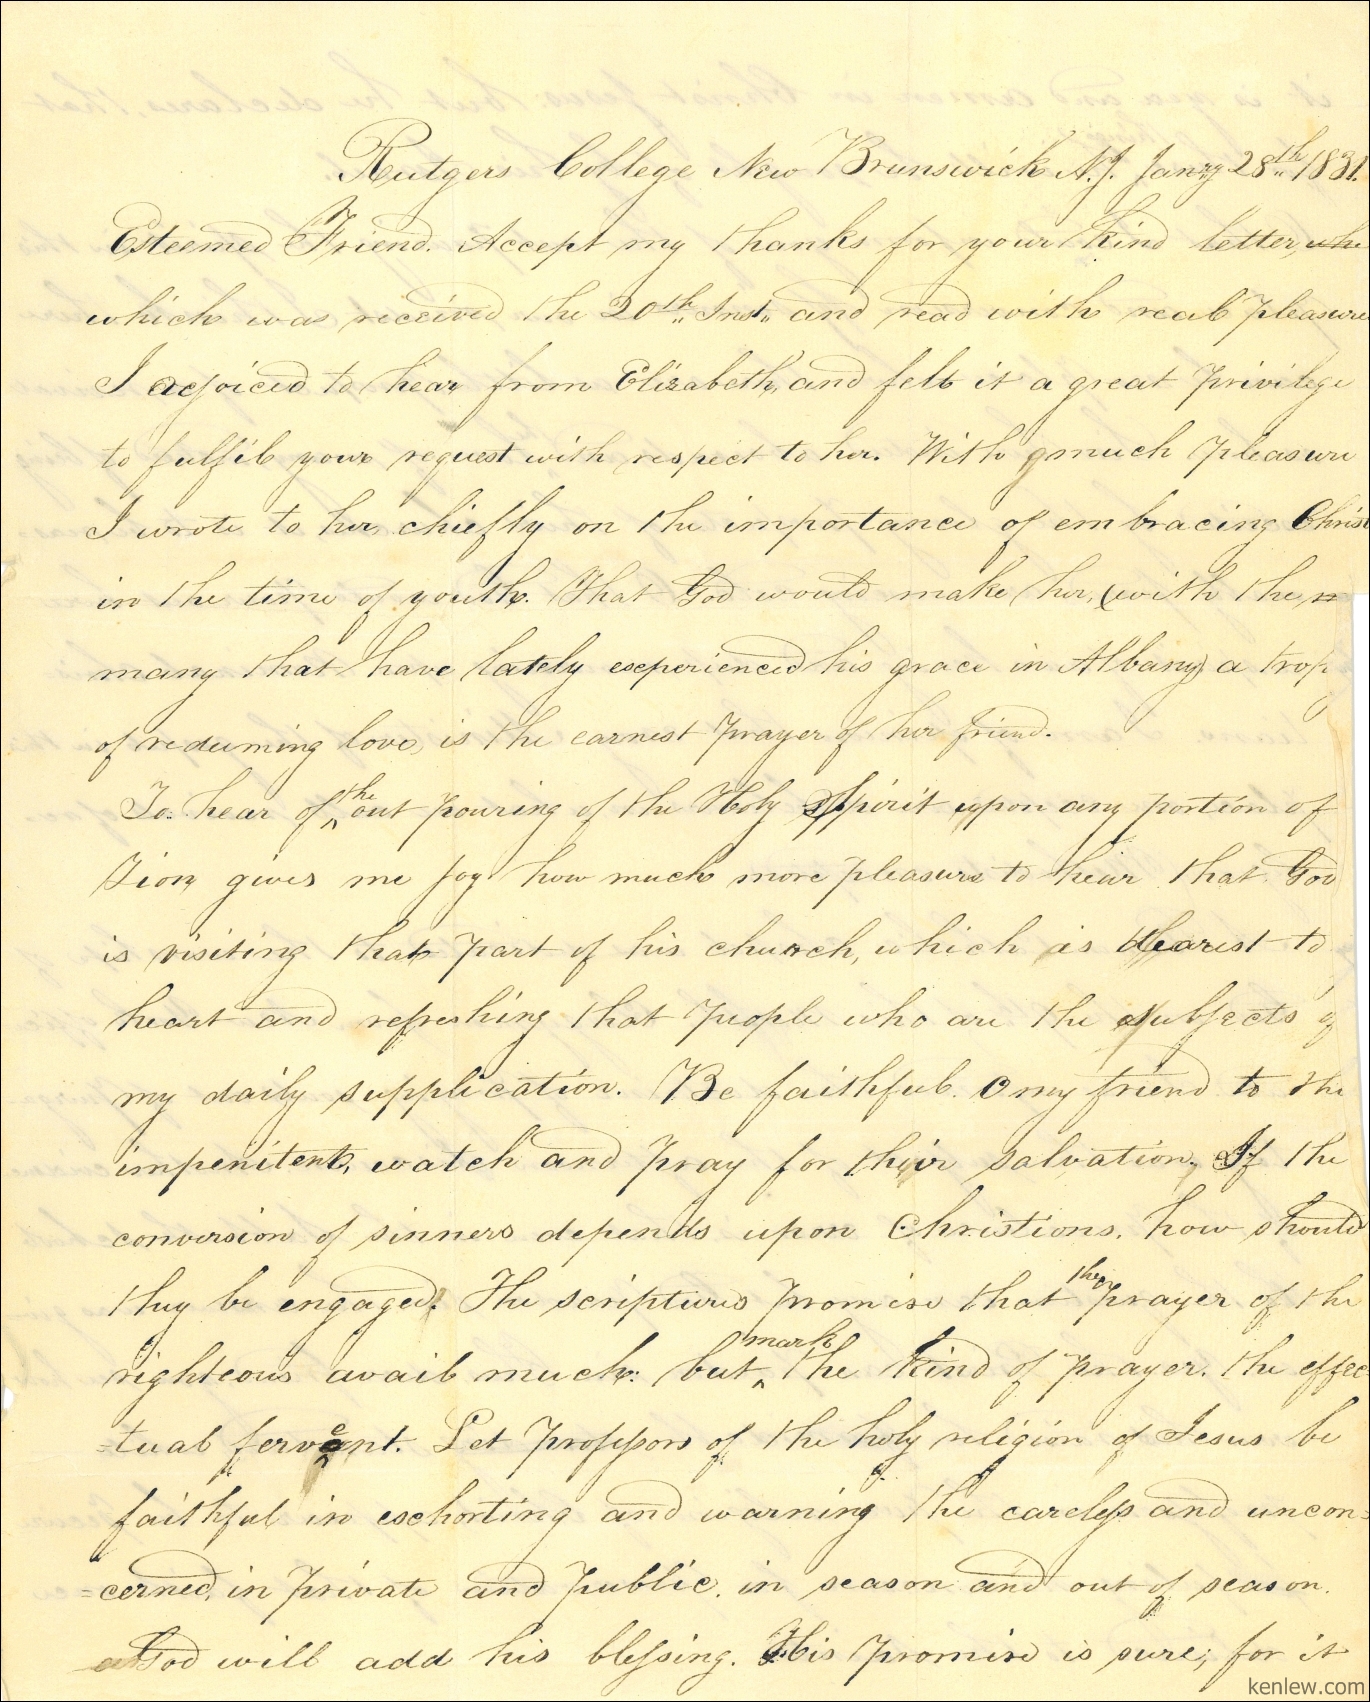 Rutgers College New Brunswick N.J. Janry 28th 1831.
Esteemed Friend. Accept my thanks for your kind letter, whi
which was received the 20th Inst. and read with real pleasure
I rejoiced to hear from Elizabeth, and felt it a great privilege
to fulfil your request with respect to her. With much pleasure
I wrote to her, chiefly on the importance of embracing Christ
in the time of youth. That God would make her, (with the m
many that have lately experienced his grace in Albany) a trop
of redeeming love, is the earnest prayer of her friend.
To hear of the out pouring of the Holy Spirit upon any portion of
Zion gives me joy how much more pleasure to hear that God
is visiting that part of his church, which is dearest to
heart and refreshing that people who are the subjects of
my daily supplication. Be faithful. O my friend to the
impenitent, watch and pray for their salvation. If the
conversion of sinners depends upon Christions. how should
they be engaged. The scriptures promise that the prayer of the
righteous avail much: but mark the kind of prayer. the effec
=tual fervent. Let professors of the holy religion of Jesus be
faithful in exhorting and warning the careless and uncon=
=cerned, in private and public. in season and out of season.
God will add his blessing. His promise is sure; for it
kenlew.com